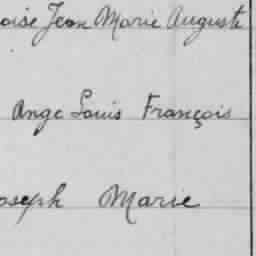 oise Jean Marie Auguste
Ange Louis François
oseph Marie